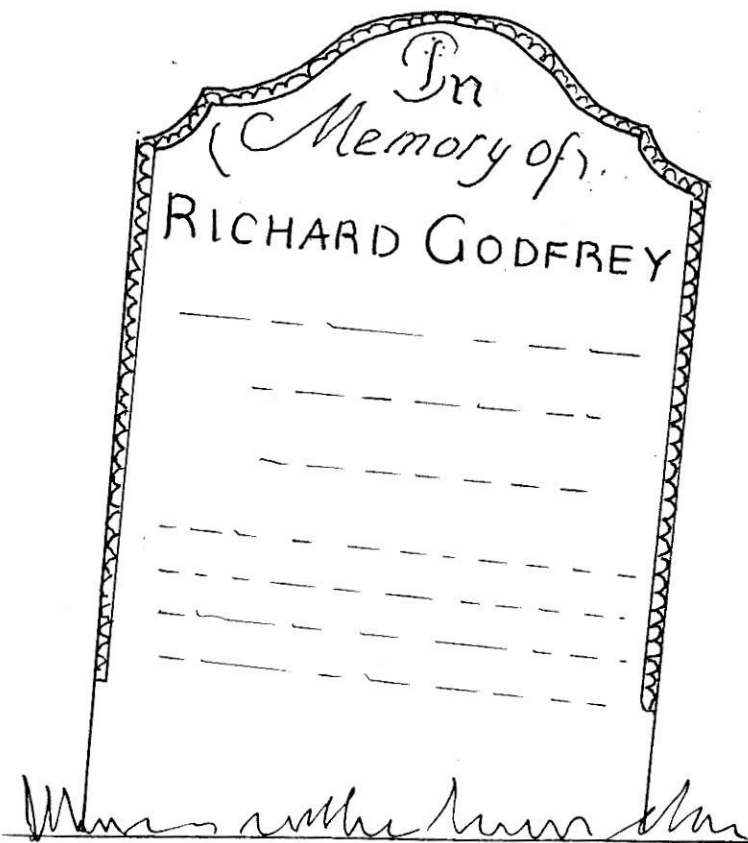 In
Memory of
RICHARD GODFREY